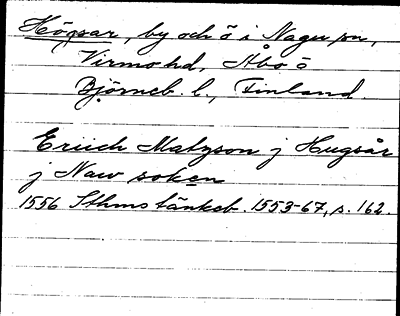 Högsar, by och ö i Nagu sn,
Virmo hd, Åbo o
Björneb. l., Finland.
Eriich Matzson j Hugsår
j Naw soken
1556 Sthms tänkeb. 1553-67, s. 162.